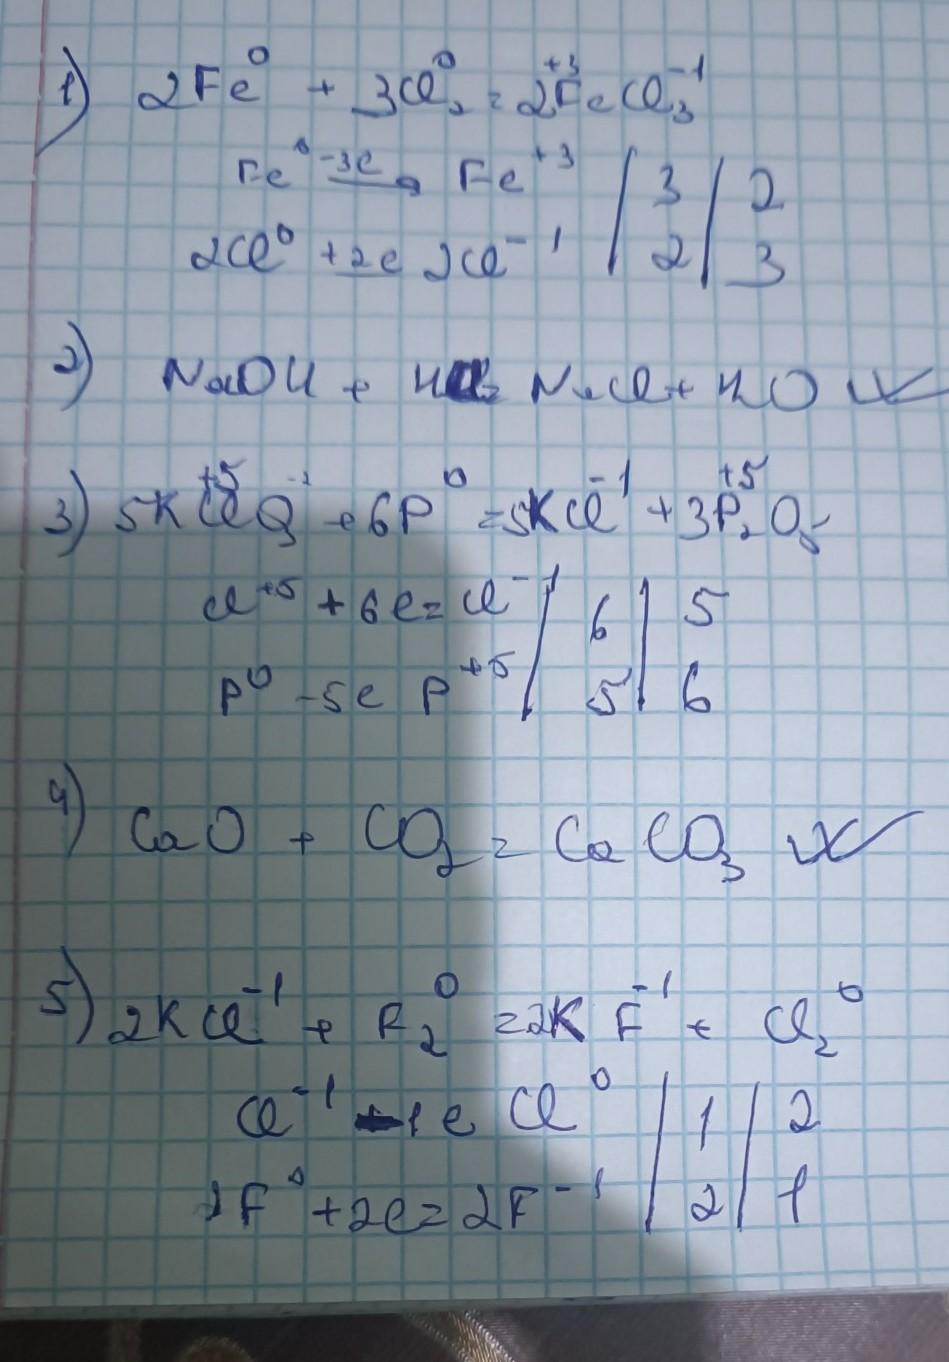 1) 2Fe⁰ + 3Cl₂⁰ = 2Fe⁺³Cl₃⁻¹
Fe⁰ -3e → Fe⁺³ | 3 | 2
2Cl⁰ +2e 2Cl⁻¹ | 2 | 3
2) NaOH + HCl = NaCl + H2O
3) 5KCl⁺⁵O₃⁻² + 6P⁰ = 5KCl⁻¹ + 3P₂⁺⁵O₅
Cl⁺⁵ + 6e = Cl⁻¹ | 6 | 5
P⁰ -5e P⁺⁵ | 5 | 6
4) CaO + CO₂ = CaCO₃
5) 2KCl⁻¹ + F₂⁰ = 2KF⁻¹ + Cl₂⁰
Cl⁻¹ -1e Cl⁰ | 1 | 2
2F⁰ +2e = 2F⁻¹ | 2 | 1